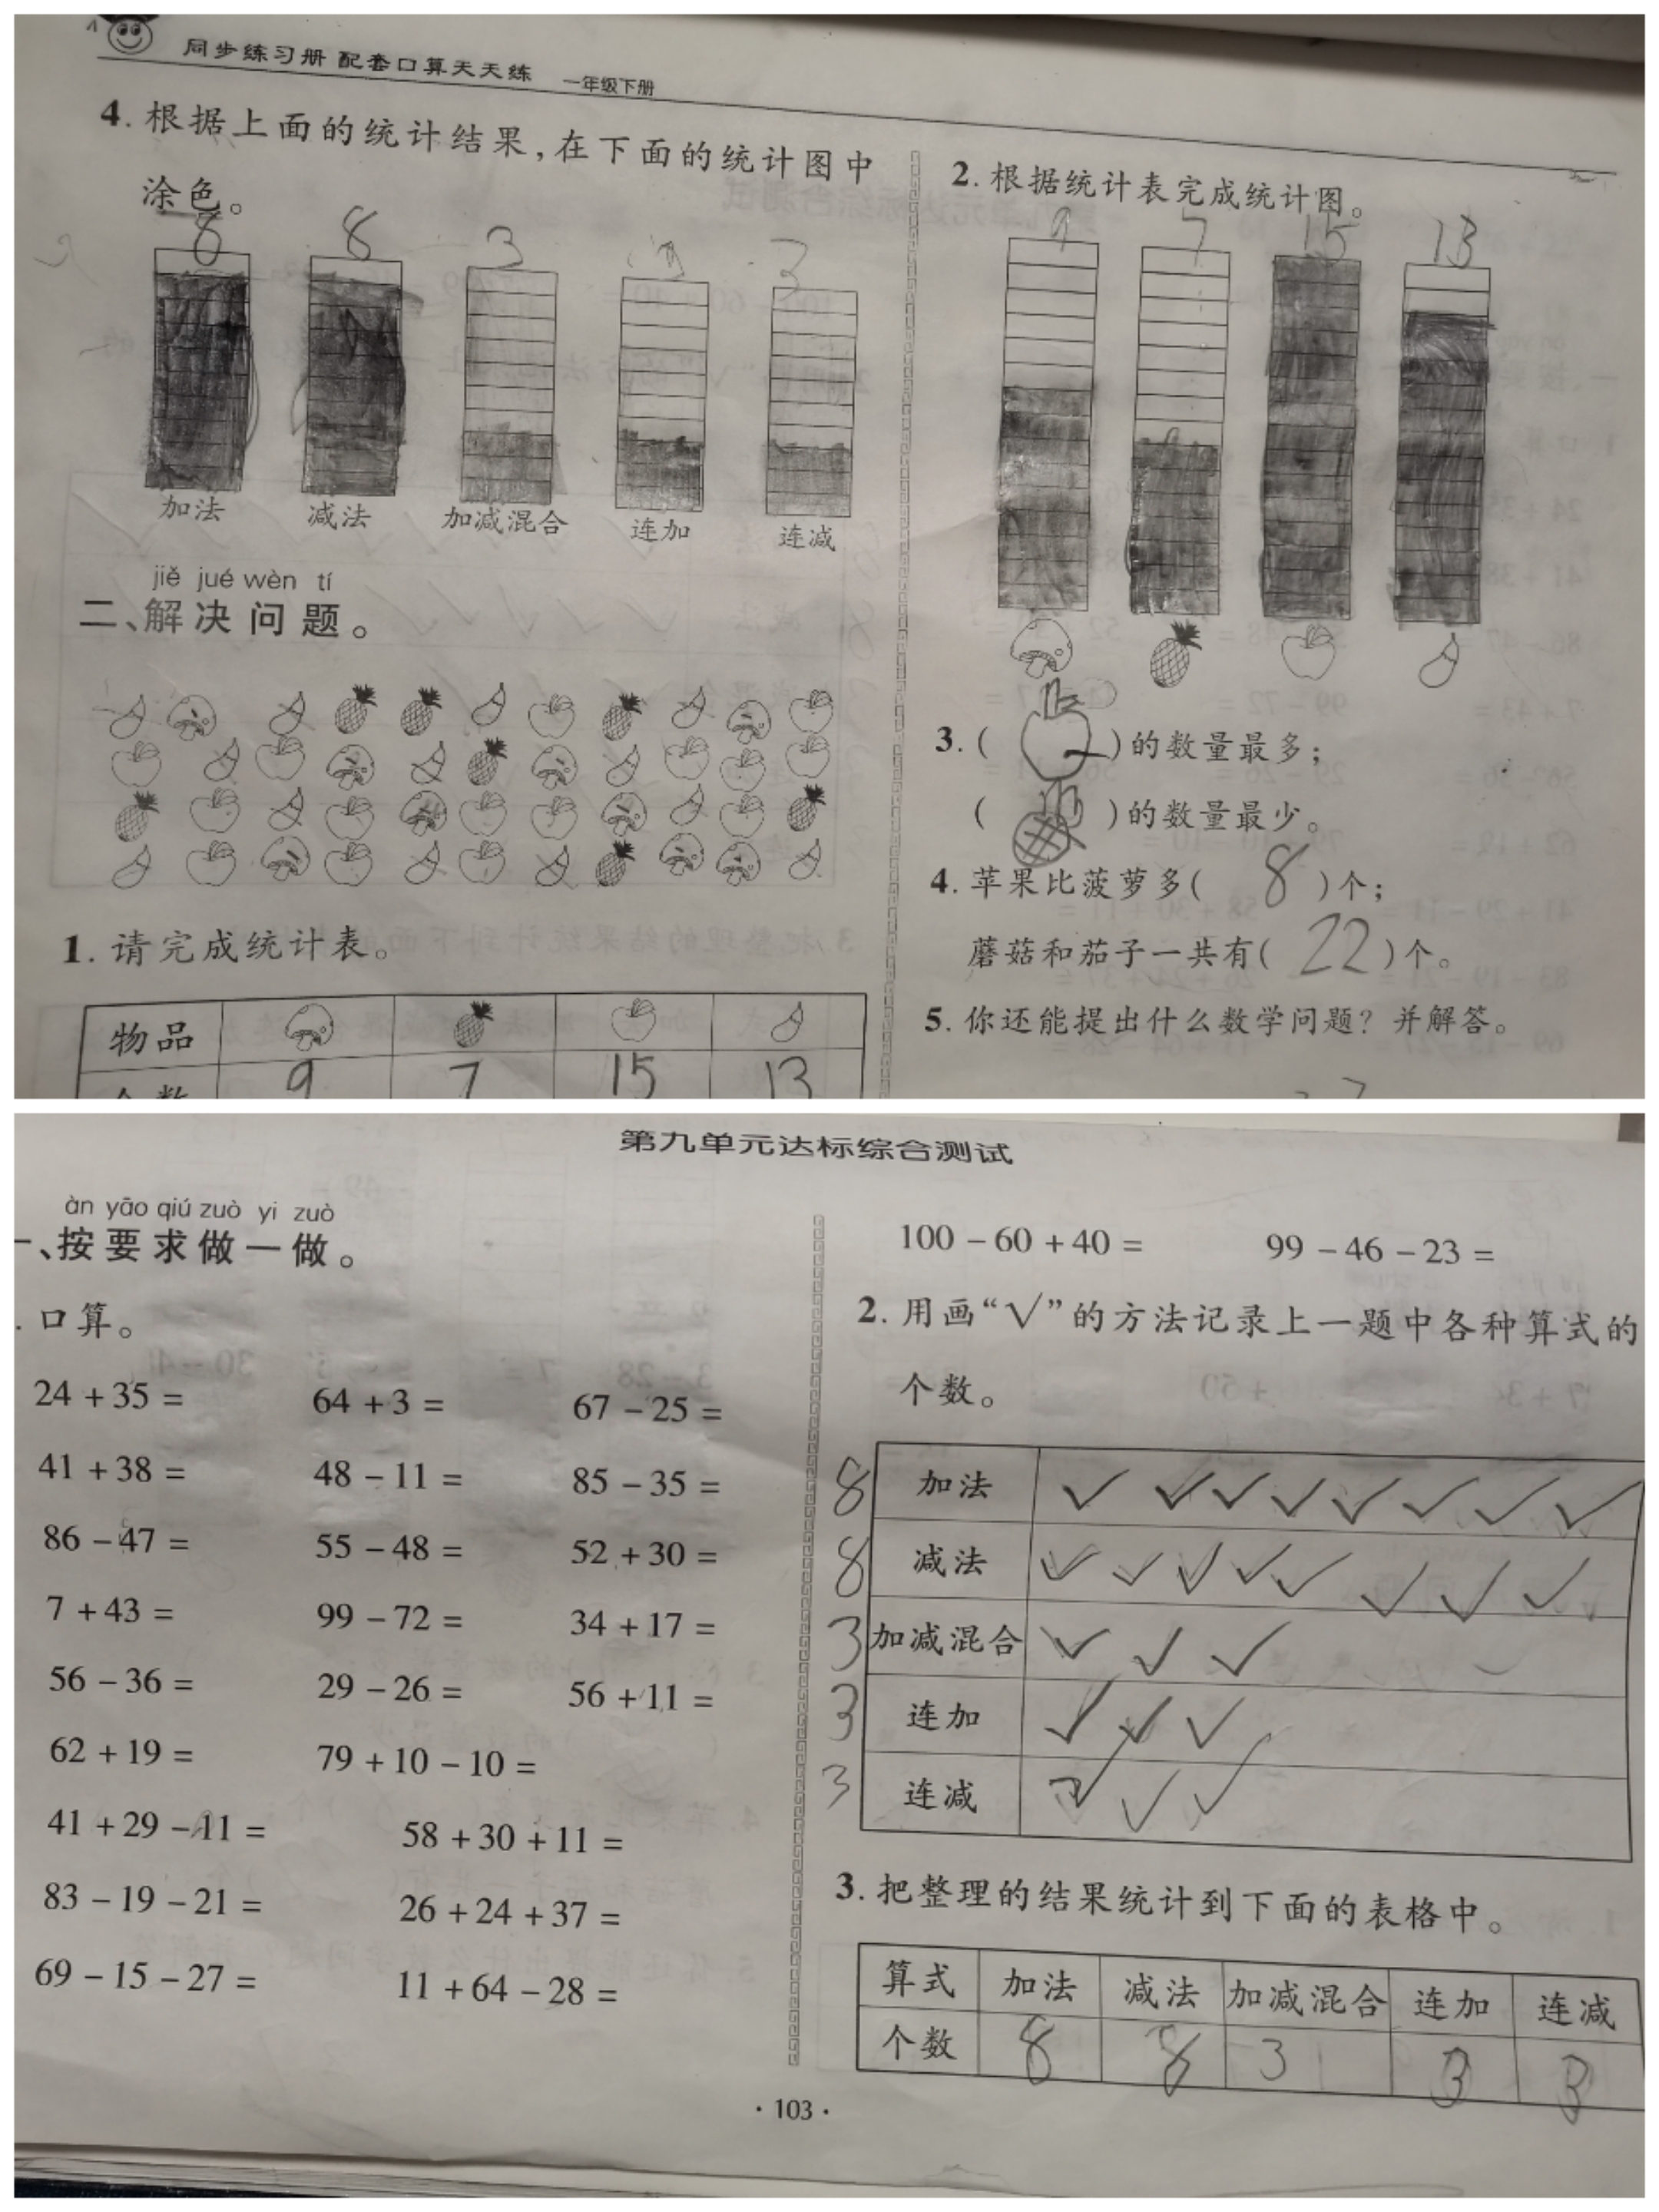 同步练习册 配套口算天天练 一年级下册
4. 根据上面的统计结果,在下面的统计图中
涂色。
8 8 3 3
加法 减法 加减混合 连加 连减
jiě jué wèn tí
二、解决问题。
1. 请完成统计表。
物品
个数 9 7 15 13
2. 根据统计表完成统计图。
9 7 15 13
3. ( )的数量最多;
( )的数量最少。
4. 苹果比菠萝多( 8 )个;
蘑菇和茄子一共有( 22 )个。
5. 你还能提出什么数学问题? 并解答。
第九单元达标综合测试
àn yāo qiú zuò yi zuò
一、按要求做一做。
. 口算。
24 + 35 = 64 + 3 = 67 - 25 =
41 + 38 = 48 - 11 = 85 - 35 =
86 - 47 = 55 - 48 = 52 + 30 =
7 + 43 = 99 - 72 = 34 + 17 =
56 - 36 = 29 - 26 = 56 + 11 =
62 + 19 = 79 + 10 - 10 =
41 + 29 - 11 = 58 + 30 + 11 =
83 - 19 - 21 = 26 + 24 + 37 =
69 - 15 - 27 = 11 + 64 - 28 =
100 - 60 + 40 = 99 - 46 - 23 =
2. 用画“√”的方法记录上一题中各种算式的
个数。
8 加法 ✓ ✓ ✓ ✓ ✓ ✓ ✓ ✓
8 减法 ✓ ✓ ✓ ✓ ✓ ✓ ✓ ✓
3 加减混合 ✓ ✓ ✓
3 连加 ✓ ✓ ✓
3 连减 ✓ ✓ ✓
3. 把整理的结果统计到下面的表格中。
算式 加法 减法 加减混合 连加 连减
个数 8 8 3 3 3
· 103 ·